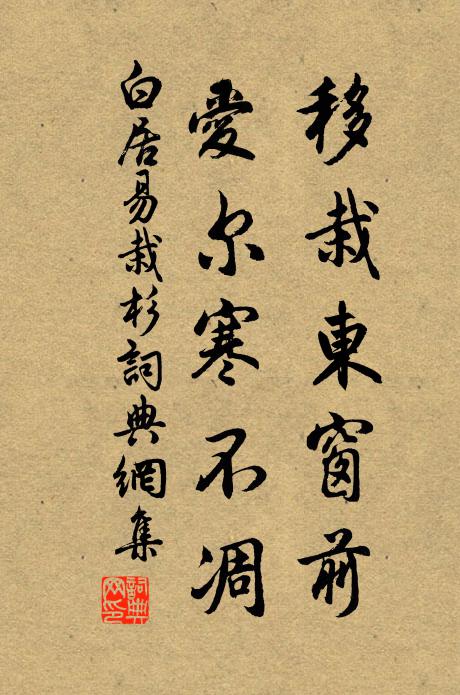 移栽東窗前
愛尔寒不凋
白居易栽杉詞典網集
詞典网印